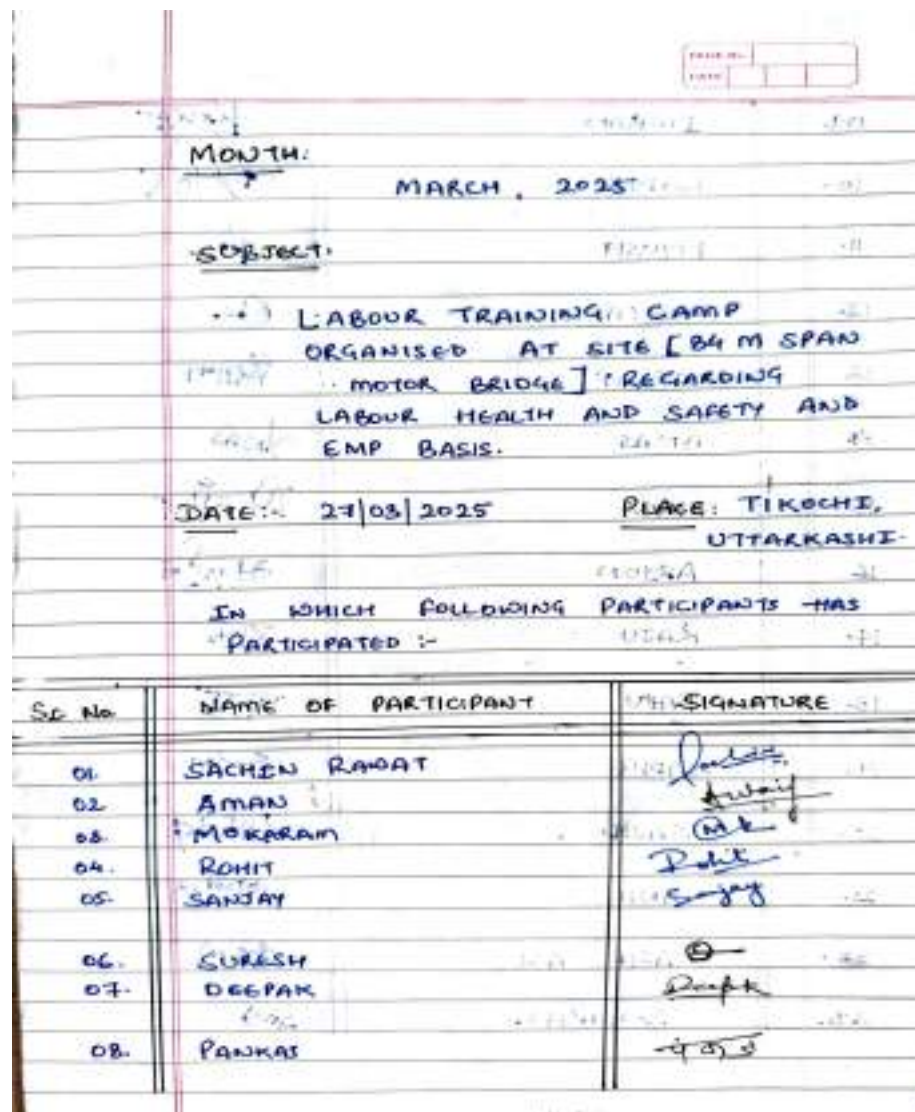 PAGE NO.
DATE
MONTH:
MARCH, 2025
SUBJECT:
LABOUR TRAINING CAMP
ORGANISED AT SITE [84 M SPAN
MOTOR BRIDGE] REGARDING
LABOUR HEALTH AND SAFETY AND
EMP BASIS.
DATE:- 27|03|2025 PLACE: TIKOCHI,
UTTARKASHI.
IN WHICH FOLLOWING PARTICIPANTS HAS
PARTICIPATED :-
Sr No. NAME OF PARTICIPANT SIGNATURE
01. SACHIN RAWAT
02 AMAN
03. MOKARAM MK
04. ROHIT Rohit
05. SANJAY Sanjay
06. SURESH
07. DEEPAK Deepak
08. PANKAJ पंकज